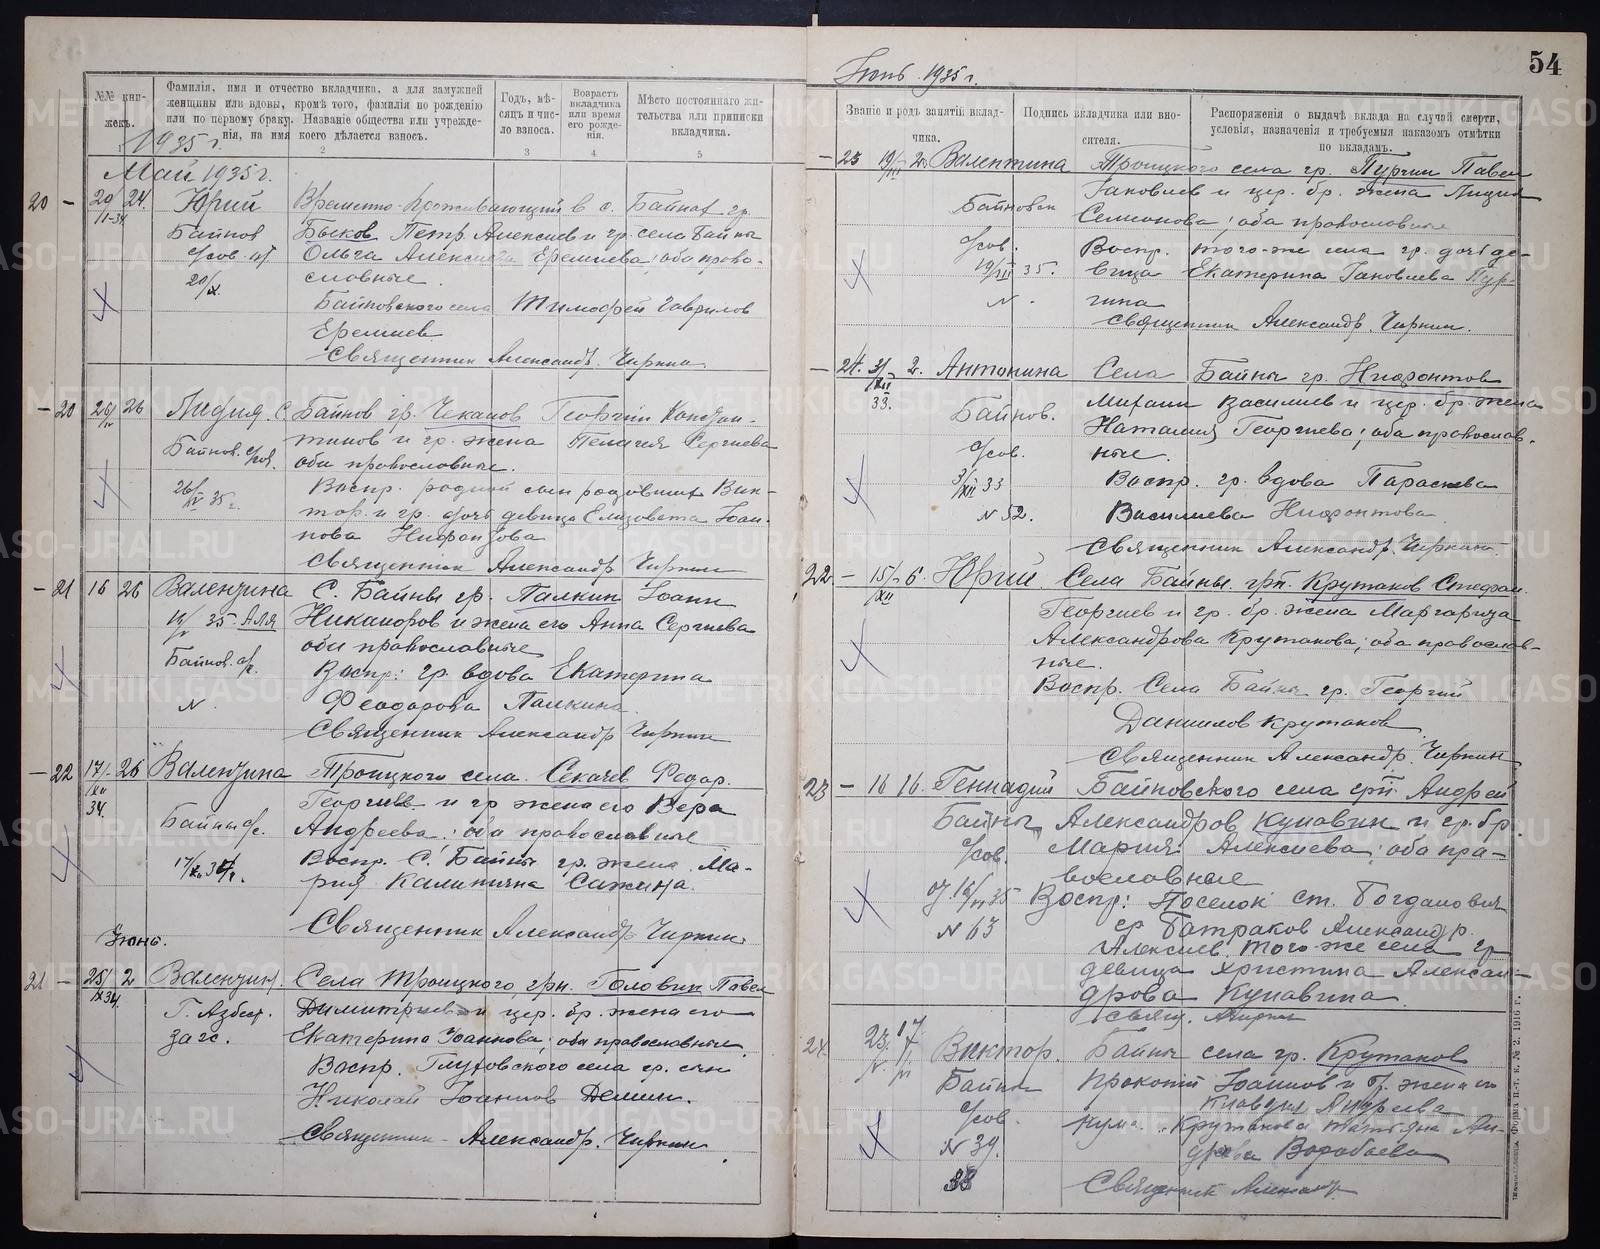 №№ книжекъ.
Фамилія, имя и отчество вкладчика, а для замужней
женщины или вдовы, кромѣ того, фамилія по рожденію
или по первому браку. Названіе общества или учрежденія, на имя коего дѣлается взносъ.
Годъ, мѣсяцъ и число взноса.
Возрастъ вкладчика или время его рожденія.
Мѣсто постояннаго жительства или приписки вкладчика.
2 3 4 5
1935 г.
Май 1935 г.
20 – 20/I-34 24. Юрий Временно-проживающий в с. Байнах гр.
Байнов Быков Петр Алексиев и гр. села Байны
с/сов. Ольга Алексиева Еремиева; оба право-
20/IX славные.
Байновского села Тимофей Гаврилов
Еремиев
Священник Александр. Чиркин
– 20 26/IV 26 Лидия. С. Байнов гр. Чеканов Георгий Констан-
тинов и гр. жена Пелагея Сергиева
Байнов. с/сов. оба православные.
26/IV 35 г. Воспр. родной сын родивших Вик-
тор. и гр. дочь девица Елизовета Иоан-
нова Нифонтова
Священник Александр Чиркин
– 21 16 26 Валентина С. Байны гр. Палкин Иоанн
16/V 35 Аля Никаноров и жена его Анна Сергиева
оби православные
Байнов. с/с. Воспр: гр. вдова Екатерина
N Феодорова Палкина.
Священник Александр Чиркин
– 22 17/XII 34. 26 Валентина Троицкого села. Секачев Федор.
Георгиев и гр жена его Вера
Байны с/с. Андреева: оба православные
17/XII 34 г. Воспр. С. Байны гр. жена Ма-
рия Калинична Сажина.
Священник Александр Чиркин
Июнь.
21 – 25/IX 34. 2 Валентин. Села Троицкого, грн. Головин Павел
Г. Азбест. Димитриев и цер. бр. жена его
загс. Екатерина Иоаннова; оба православные
Воспр. Глуховского села гр. сын
Николай Иоаннов Демин.
Священник Александр. Чиркин
54
Июнь 1935 г.
Званіе и родъ занятій вкладчика.
Подпись вкладчика или вносителя.
Распоряженія о выдачѣ вклада на случай смерти,
условія, назначенія и требуемыя наказомъ отмѣтки
по вкладамъ.
– 23 19/III 2. Валентина Троицкого села гр. Пургин Павел
Иаковлев и цер. бр. жена Лидия
Байновск Семионова; оба православные
с/сов. Воспр. того-же села гр. дочь де-
19/III 35. вица Екатерина Иаковлева Пур-
N - гина
Священник Александр. Чиркин.
– 24. 31/XII 33. 2. Антонина Села Байны гр. Нифонтов
Мираин Василиев и цер. бр. жена
Байнов. Наталия Георгиева; оба православ-
с/сов. ные.
3/XII 33 Воспр. гр. вдова Параскева
N 52. Василиева Нифонтова
Священник Александр. Чиркин.
22 – 15/XII 6. Юрий. Села Байны. грн. Крутаков Стефан.
Георгиев и гр. бр. жена Маргарита
Александрова Крутакова; оба православ-
ные.
Воспр. Села Байны гр. Георгий
Даниилов Крутаков
Священник Александр. Чиркин
23 – 16 16. Геннадий Байновского села грн. Андрей
Байны Александров Кунавин и гр. бр.
с/сов. Мария Алексиева; оба пра-
вославные
от 16/VI 35 Воспр: Поселок ст. Богданович
N 63 гр Батраков Александр.
Алексиев. того-же села гр
девица Христина Алексан-
дрова Кунавина.
Свящ. Чиркин
24. 23/V 17/VI Виктор. Байны села гр. Крутаков
Байны Прокопий Иоаннов и бр. жена его
с/сов. Клавдия Андреева
N 39. кума. Крутакова Татьяна Ан-
дреева Воробьева
38 Священник Александр.
Форма п.-т. к. № 2. 1916 г.
METRIKI.GASO-URAL.RU